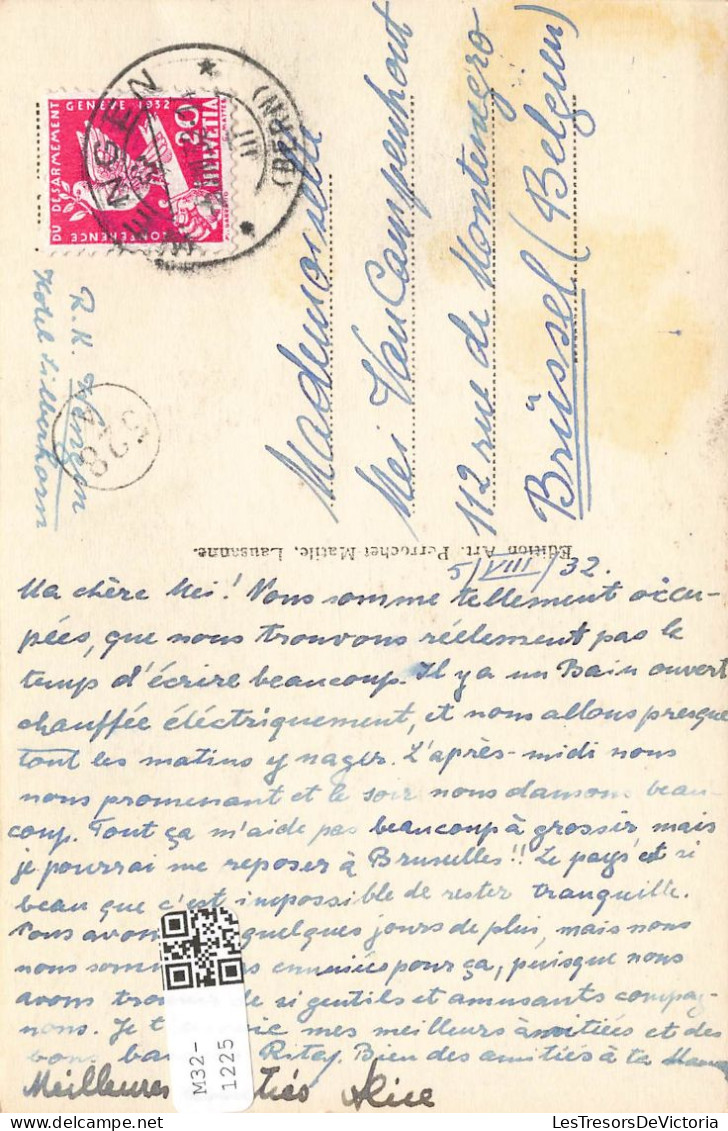 CONFERENCE DU DÉSARMEMENT GENÈVE 1932
20 HELVETIA
WENGEN
(BERN)
Mademoiselle
Mei Van Campenhout
112 rue de Montenegro
Brüssel (Belgien)
R. K. Wengen
Hotel Silberhorn
528
Edition Art. Perrochet-Matile, Lausanne.
5/VIII/32.
Ma chère Mei! Nous somme tellement occu-
pées, que nous trouvons réellement pas le
temps d'écrire beaucoup. Il y a un Bain ouvert
chauffée éléctriquement, et nous allons presque
tout les matins y nager. L'après-midi nous
nous promenant et le soir nous dansons beau-
coup. Tout ça m'aide pas beaucoup à grossir mais
je pourrai me reposer à Bruxelles!! Le pays est si
beau que c'est impossible de rester tranquille.
Nous avons quelques jours de plui, mais nous
nous somm ennuiées pour ça, puisque nous
avons trou de si gentils et amusants compag-
nons. Je t mes meilleurs amitiées et des
bons bai Ritaj. Bien des amitiés à ta Maman
Meilleures amitiés Alice
M32-
1225
LesTresorsDeVictoria.com